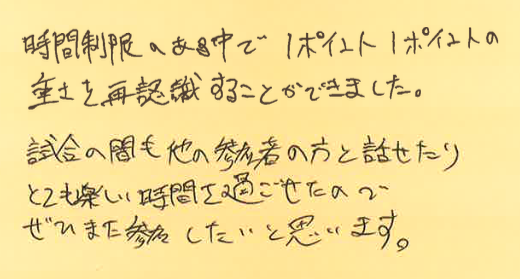 時間制限のある中で1ポイント1ポイントの
重さを再認識することができました。
試合の間も他の参加者の方と話せたり
とても楽しい時間を過ごせたので
ぜひまた参加したいと思います。